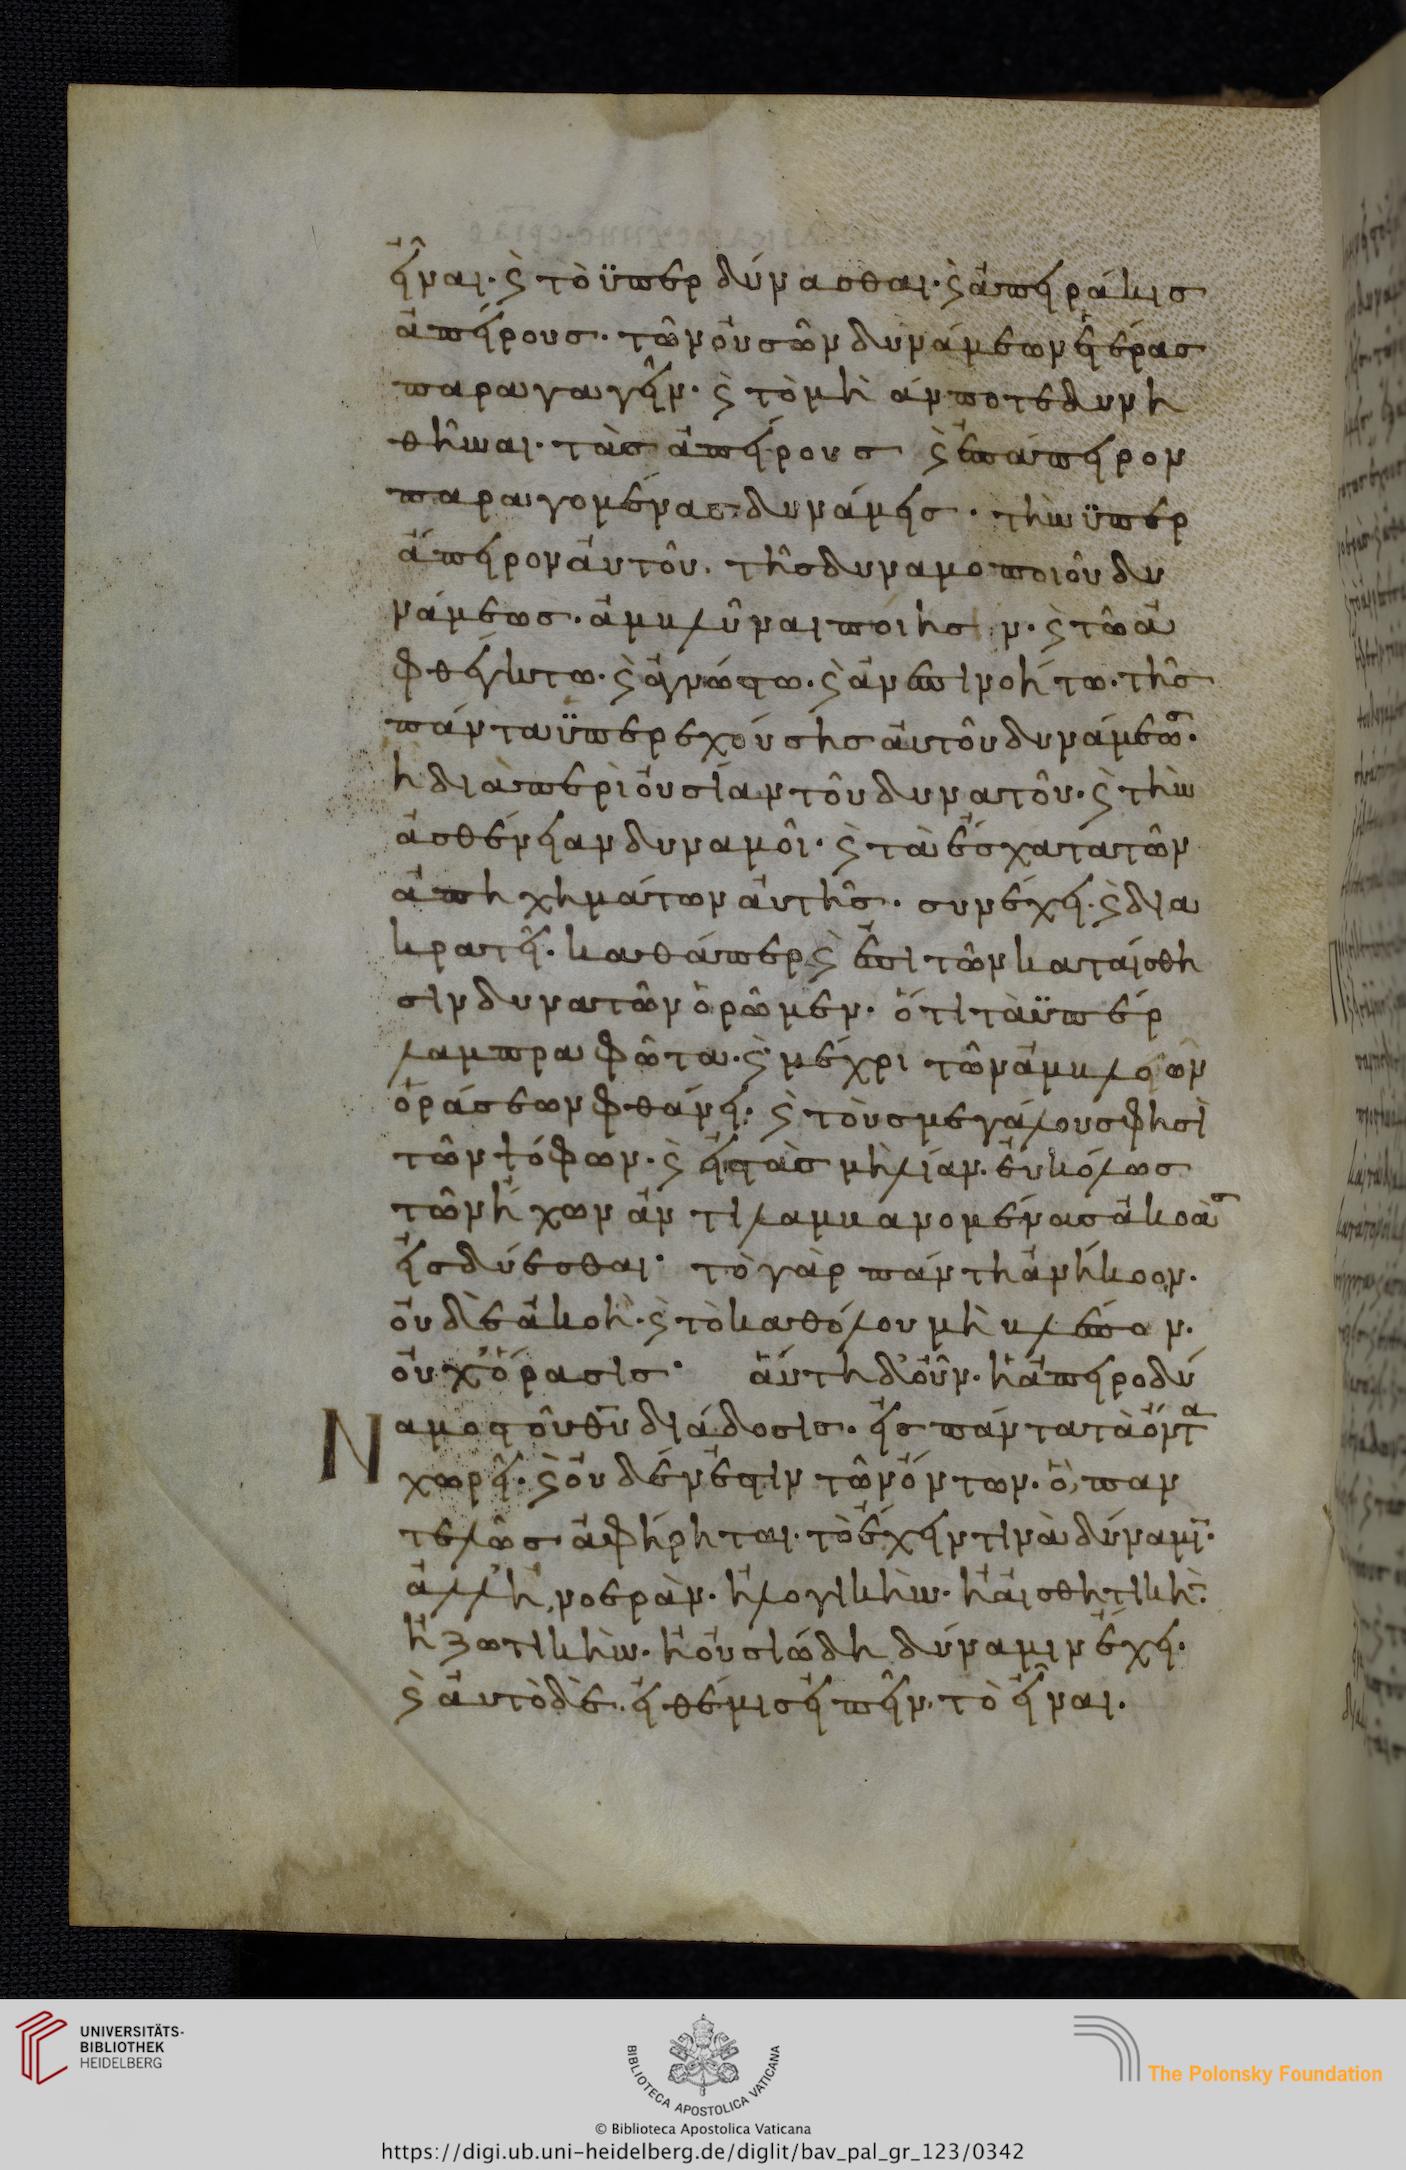 εἶναι· ϗ τὸ ϋπερ δύνασθαι· ϗ ἀπειράκισ
ἀπείρουσ· τῶν οὐσῶν δυνάμεων ἑτέρασ
παραγαγεῖν· ϗ τὸ μὴ ἄν ποτε δυνη
θῆναι· τὰσ ἀπείρουσ ϗ ἐπάπειρον
παραγομένασ δυνάμεισ· τὴν ϋπερ
ἄπειρον ἀυτοῦ· τῆσ δυναμοποιοῦ δυ
νάμεωσ· ἀμβλῦναι ποίησιν· ϗ τῶ ἀ
φθέγκτω· ϗ ἀγνώστω· ϗ ἀνεπινοήτω· τῆσ
πάντα ϋπερεχούσησ ἀυτοῦ δυνάμεωσ·
ἡ διὰ περὶ οὐσίαν τοῦ δυνατοῦ· ϗ τὴν
ἀσθένειαν δυναμοῖ· ϗ τὰ ἔσχατα τῶν
ἀπηχημάτων ἀυτῆσ· συνέχει· ϗ δια
κρατεῖ· καθάπερ ϗ ἐπὶ τῶν καταίσθη
σιν δυνατῶν ὁρῶμεν· ὅτι τὰ ϋπέρ
λαμπρα φῶτα· ϗ μέχρι τῶν ἀμβλειῶν
ὁράσεων φθάνει· ϗ τοὺσ μεγάλουσ φησὶ
τῶν ψόφων· ϗ εἰστὰσ μὴ λίαν· ἐυκόλωσ
τῶν ἤχων ἀντιλαμβανομένασ ἀκοὰσ
εἰσδύεσθαι· τὸ γὰρ πάντη ἀνήκοον·
οὐδὲ ἀκοὴ· ϗ τὸ καθόλου μὴ βλέπον·
οὐχ᾽ ὅρασισ· ἅυτη δ᾽ οὖν· ἡ ἀπειροδύ
ναμοσ τοῦ θῡ διάδοσισ· εἰσ πάντα τὰ ὄντα
χωρεῖ· ϗ οὐδέν ἐστιν τῶν ὄντων· ὃ, παν
τελῶσ ἀφήρηται· τὸ ἔχειν τινὰ δύναμιν·
ἀλλ᾽ ἢ, νοερὰν· ἢ λογικὴν· ἢ ἀισθητικὴν·
ἢ ζωτικὴν· ἢ οὐσιώδη δύναμιν ἔχει·
ϗ ἀυτὸ δὲ· εἰ θέμισ εἰπεῖν· τὸ εἶναι·
UNIVERSITÄTS-
BIBLIOTHEK
HEIDELBERG
BIBLIOTECA APOSTOLICA VATICANA
The Polonsky Foundation
© Biblioteca Apostolica Vaticana
https://digi.ub.uni-heidelberg.de/diglit/bav_pal_gr_123/0342